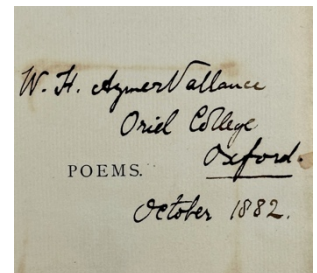 W. H. Aymer Vallance
Oriel College
Oxford.
POEMS.
October 1882.